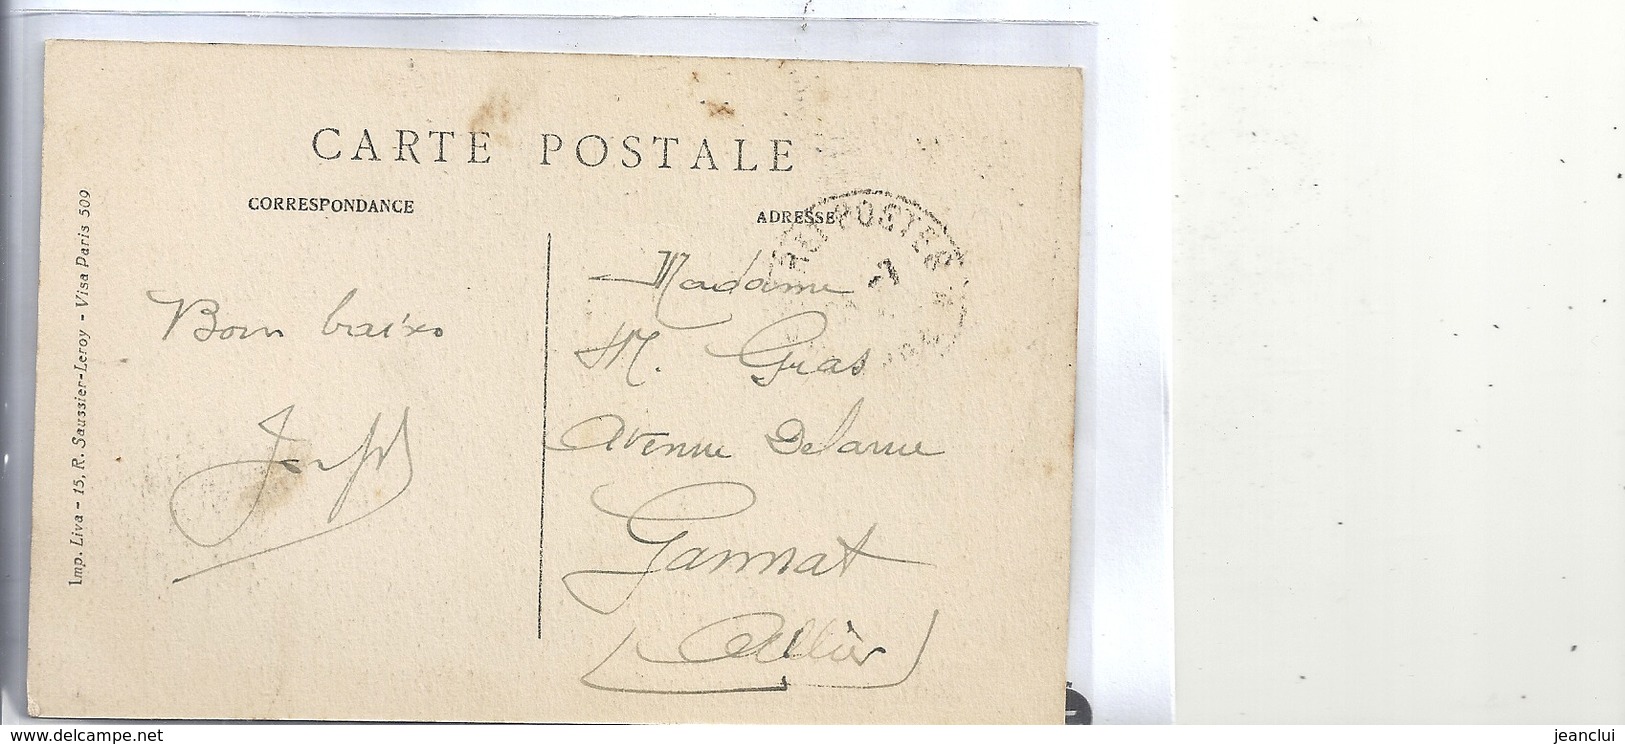 CARTE POSTALE
CORRESPONDANCE
ADRESSE
Imp. Liva - 15, R. Saussier-Leroy - Visa Paris 509
Bon baiso
Joseph
POSTES
Madame
M. Gras
Avenue Delarue
Gannat
Allier
www.delcampe.net
jeanclui